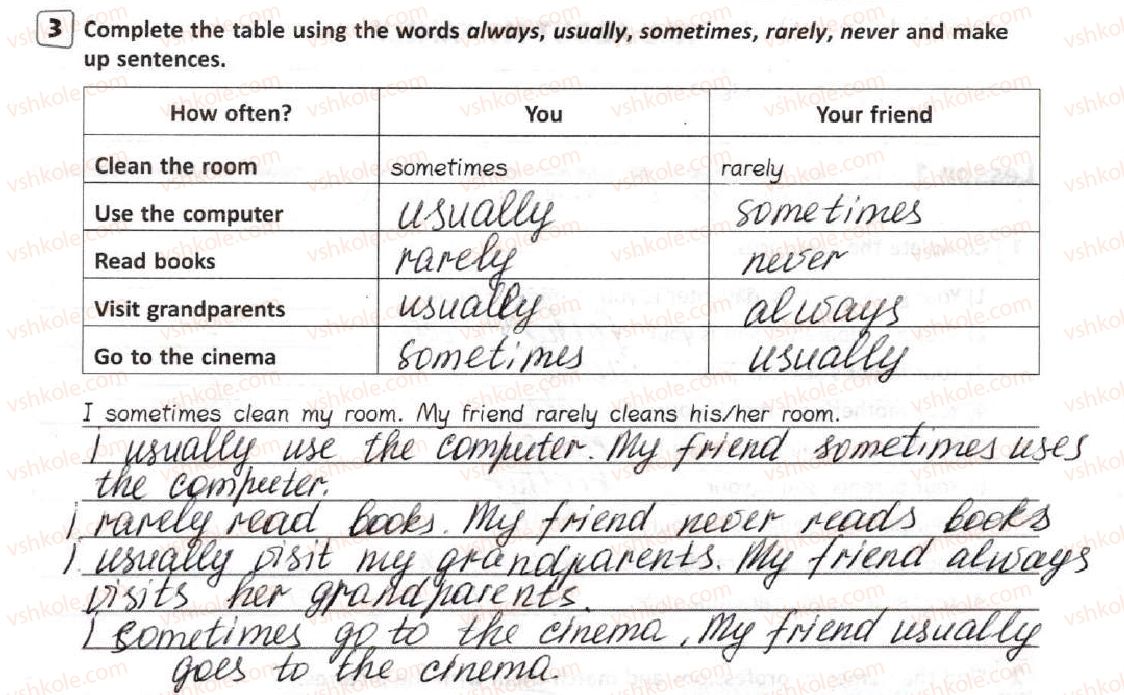 3 Complete the table using the words always, usually, sometimes, rarely, never and make
up sentences.
How often? You Your friend
Clean the room sometimes rarely
Use the computer usually sometimes
Read books rarely never
Visit grandparents usually always
Go to the cinema sometimes usually
I sometimes clean my room. My friend rarely cleans his/her room.
I usually use the computer. My friend sometimes uses
the computer.
I rarely read books. My friend never reads books
I usually visit my grandparents. My friend always
visits her grandparents.
I sometimes go to the cinema. My friend usually
goes to the cinema.
vshkole.com